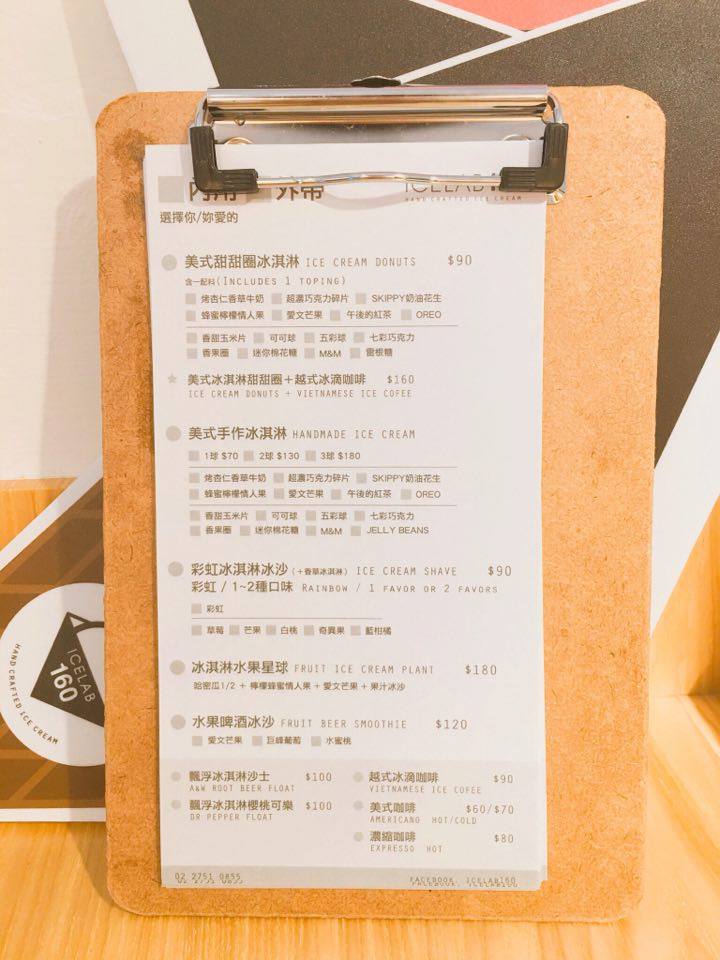 內用 外帶
ICELAB
HAND CRAFTED ICE CREAM
選擇你/妳愛的
美式甜甜圈冰淇淋 ICE CREAM DONUTS $90
含一配料(INCLUDES 1 TOPING)
烤杏仁香草牛奶 超濃巧克力碎片 SKIPPY奶油花生
蜂蜜檸檬情人果 愛文芒果 午後的紅茶 OREO
香甜玉米片 可可球 五彩球 七彩巧克力
香果圈 迷你棉花糖 M&M 雷根糖
美式冰淇淋甜甜圈+越式冰滴咖啡 $160
ICE CREAM DONUTS + VIETNAMESE ICE COFEE
美式手作冰淇淋 HANDMADE ICE CREAM
1球 $70 2球 $130 3球 $180
烤杏仁香草牛奶 超濃巧克力碎片 SKIPPY奶油花生
蜂蜜檸檬情人果 愛文芒果 午後的紅茶 OREO
香甜玉米片 可可球 五彩球 七彩巧克力
香果圈 迷你棉花糖 M&M JELLY BEANS
彩虹冰淇淋冰沙 (+香草冰淇淋) ICE CREAM SHAVE $90
彩虹 / 1~2種口味 RAINBOW / 1 FAVOR OR 2 FAVORS
彩虹
草莓 芒果 白桃 奇異果 藍柑橘
冰淇淋水果星球 FRUIT ICE CREAM PLANT $180
哈密瓜1/2 + 檸檬蜂蜜情人果 + 愛文芒果 + 果汁冰沙
水果啤酒冰沙 FRUIT BEER SMOOTHIE $120
愛文芒果 巨峰葡萄 水蜜桃
飄浮冰淇淋沙士 $100
A&W ROOT BEER FLOAT
飄浮冰淇淋櫻桃可樂 $100
DR PEPPER FLOAT
越式冰滴咖啡 $90
VIETNAMESE ICE COFEE
美式咖啡 $60/$70
AMERICANO HOT/COLD
濃縮咖啡 $80
EXPRESSO HOT
02 2751 0855
FACEBOOK. ICELAB160
ICELAB
160
HAND CRAFTED ICE CREAM